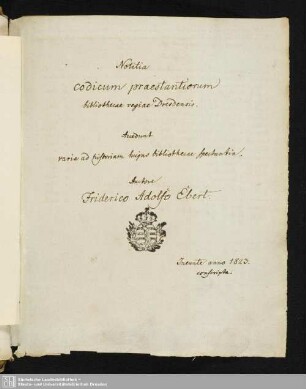 Notitia
codicum praestantiorum
bibliothecae regiae Dresdensis.
Accedunt
varia ad historiam hujus bibliothecae spectantia,
Autore
Friderico Adolfo Ebert
Ineunte anno 1823.
conscripta.
Sächsische Landesbibliothek -
Staats- und Universitätsbibliothek Dresden